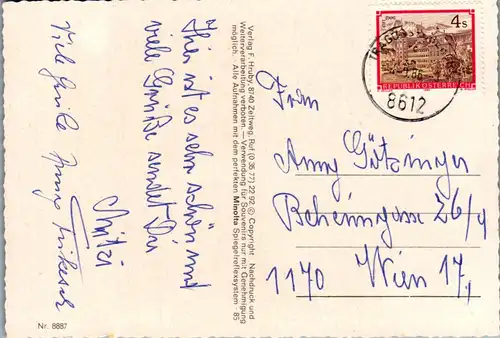 Hier ist es sehr schön und
viele Grüße sendet Dir
Mitzi
Viele Grüße
Verlag F. Hruby, 8740 Zeltweg, Ruf (0 35 77) 22 92 © Copyright Nachdruck und
Weiterverarbeitung verboten. – Verwendung für Souvenirs nur mit Genehmigung
möglich. Alle Aufnahmen mit dem perfekten Minolta Spiegelreflexsystem 85
4 S
REPUBLIK ÖSTERREICH
8612
Frau
Anny Götzinger
Beheimgasse 26/4
1170 Wien 17,
Nr. 8887